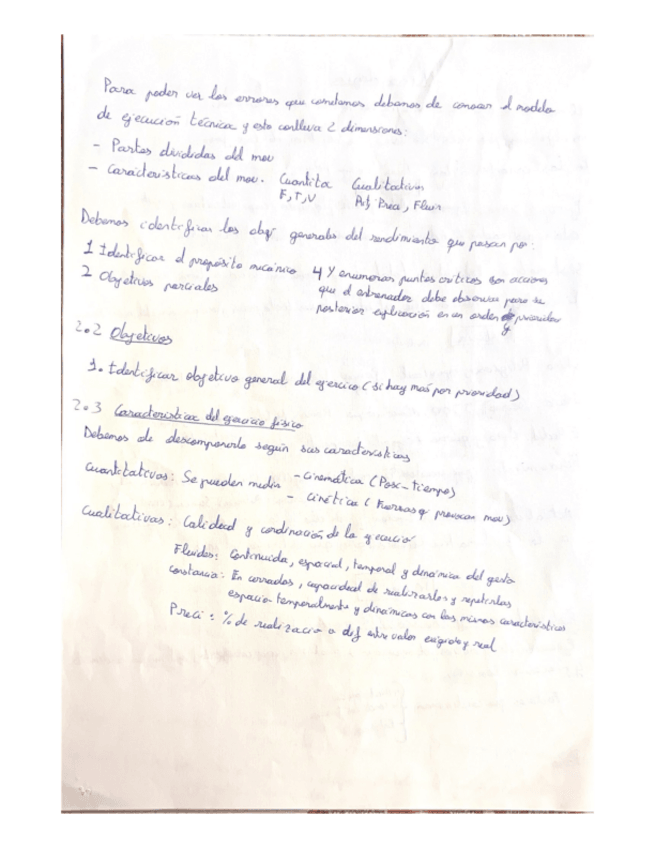 Para poder ver los errores que cometemos debemos de conocer el modelo
de ejecución técnica y esto conlleva 2 dimensiones:
- Partes divididas del mov
- Características del mov. Cuantita Cualitativas
F, T, V Prec, Fluir
Debemos identificar los obj generales del rendimiento que pasan por:
1 Identificar el propósito mecánico
2 Objetivos parciales
4 Y enumerar puntos críticos son acciones
que el entrenador debe observar para su
posterior explicación en un orden de prioridad
2.2 Objetivos
1. Identificar objetivo general del ejercicio (si hay más por prioridad)
2.3 Característica del ejercicio físico
Debemos de descomponerlo según sus características
Cuantitativas: Se pueden medir - Cinemática (Posc-tiempo)
- Cinética (Fuerzas q provocan mov)
Cualitativas: Calidad y cordinación de la ejecución
Fluidos: Continuida, espacial, temporal y denámica del gesto
Constancia: En cerrados, capacidad de realizarlos y repetirlos
espacio-temporalmente y dinámicas con las mismas características
Preci: % de realización o dif entre valor exigido y real